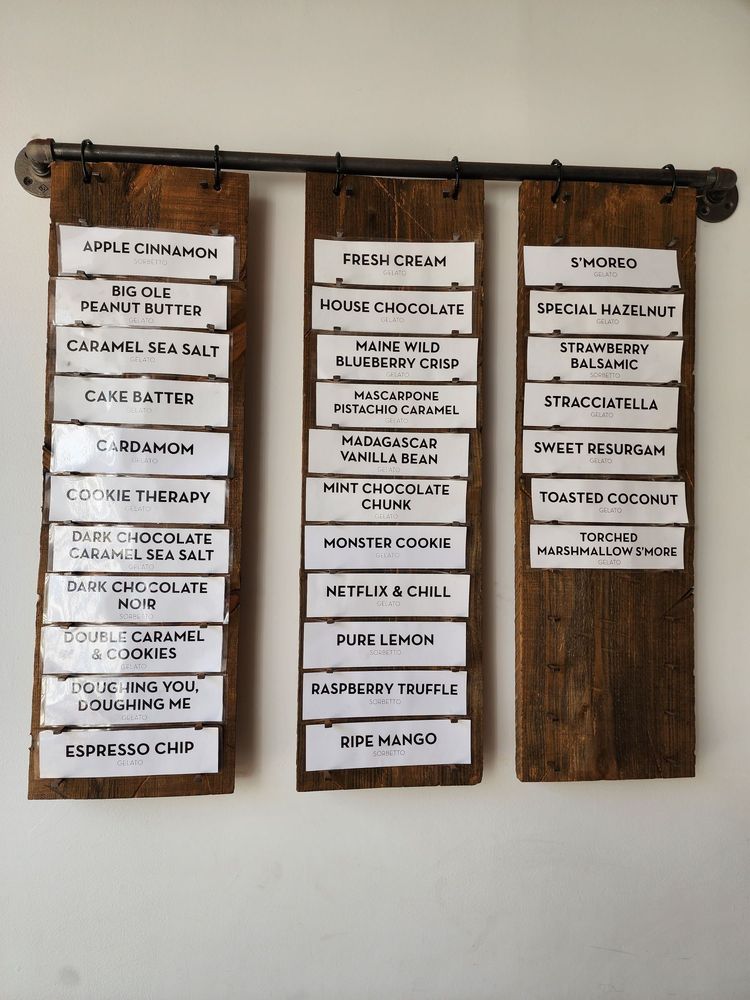 APPLE CINNAMON
SORBETTO
BIG OLE
PEANUT BUTTER
GELATO
CARAMEL SEA SALT
GELATO
CAKE BATTER
GELATO
CARDAMOM
GELATO
COOKIE THERAPY
GELATO
DARK CHOCOLATE
CARAMEL SEA SALT
GELATO
DARK CHOCOLATE
NOIR
SORBETTO
DOUBLE CARAMEL
& COOKIES
GELATO
DOUGHING YOU,
DOUGHING ME
GELATO
ESPRESSO CHIP
GELATO
FRESH CREAM
GELATO
HOUSE CHOCOLATE
GELATO
MAINE WILD
BLUEBERRY CRISP
GELATO
MASCARPONE
PISTACHIO CARAMEL
GELATO
MADAGASCAR
VANILLA BEAN
GELATO
MINT CHOCOLATE
CHUNK
GELATO
MONSTER COOKIE
GELATO
NETFLIX & CHILL
GELATO
PURE LEMON
SORBETTO
RASPBERRY TRUFFLE
SORBETTO
RIPE MANGO
SORBETTO
S'MOREO
GELATO
SPECIAL HAZELNUT
GELATO
STRAWBERRY
BALSAMIC
SORBETTO
STRACCIATELLA
GELATO
SWEET RESURGAM
GELATO
TOASTED COCONUT
GELATO
TORCHED
MARSHMALLOW S'MORE
GELATO